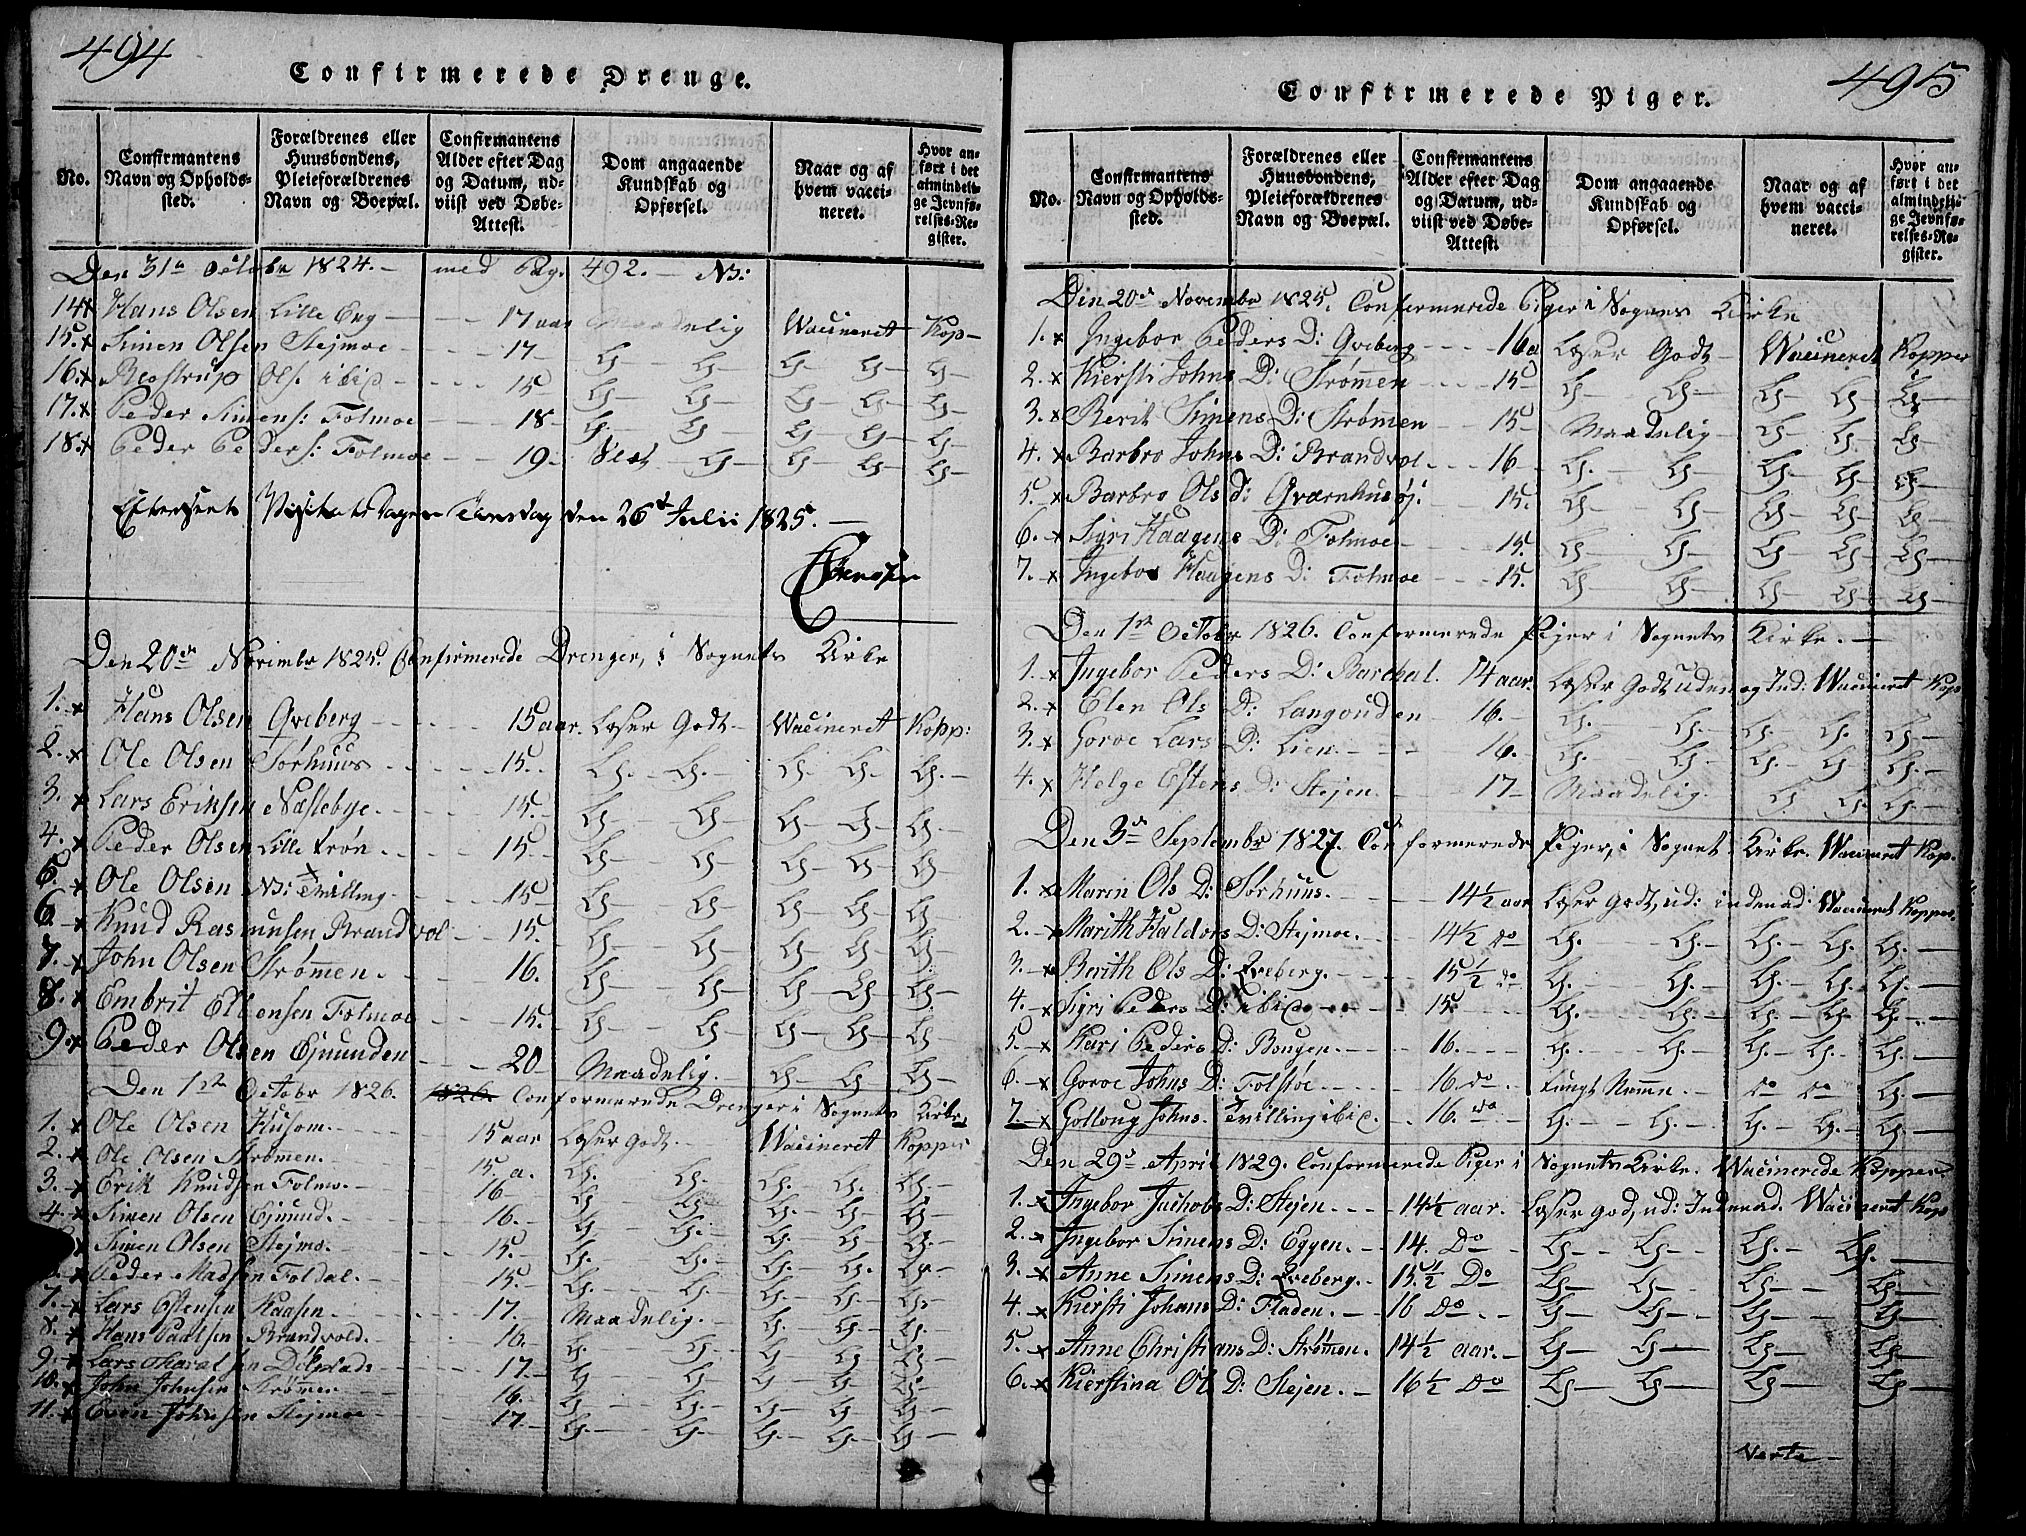 494
Confirmerede Drenge.
No.
Confirmantens Navn og Opholds-sted.
Forældrenes eller Huusbondens, Pleieforældrenes Navn og Boepæl.
Confirmantens Alder efter Dag og Datum, ud-viist ved Døbe-Attest.
Dom angaaende Kundskab og Opførsel.
Naar og af hvem vacci-neret.
Hvor an-ført i det almindeli-ge Jevnfø-relses-Re-gister.
Den 31te October 1824. — med Pag. 492. — NB:
14 x Hans Olsen Lille Eng — 17 aar Maadelig Vacineret Kop-
15. x Simen Olsen Stejmoe - - - 17 -
16. x Rostrup Ols. ibid - - - 15
17. x Peder Simens: Folmoe - - 18 -
18. x Peder Peders: Folmoe - - 19 - Slet
Efterseet Visitats dagen Tirsdag den 26d Julii 1825. —
Den 20de Novembr 1825. Confirmerede Drenger, i Sognets Kirke
1. x Hans Olsen Qveberg - - - 15 aar. Læser Godt - Vacineret Kopp:
2. x Ole Olsen Sørhuus - - - 15. -
3. x Lars Eriksen Næsebye. - - - 15. -
4. x Peder Olsen Lille trøn. - - - 15 -
5. x Ole Olsen NB: Tvilling - - - 15 -
6 x Knud Rasmunsen Brandvol - - 15.
7. x John Olsen Strømen. - - 16.
8. x Embrit Estensen Folmoe - - 15. -
9. x Peder Olsen Ejmunden - - 20 Maadelig.
Den 1ste Octobr 1826. 1826. Conformerede Drenger i Sognets Kirke
1. x Ole Olsen Husom. - - - 15 aar Læser Godt. - Vacineret Kopper
2. x Ole Olsen Strømen. - - - 15. a.
3. x Erik Knudsen Folmo. - - - 16 -
4. x Simen Olsen Ejmund. - - - 16. -
x Simen Olsen Stejmo. - - - 15. -
x Peder Madsen Foldal. - - - 15. -
7. x Lars Estensen Kaasen. - - - 17. Maadelig. -
8. x Hans Paalsen Brandvold. - - - 16.
9. x Lars Tharalsen Dølplads - - - 17. -
10. x John Johnsen Strømen - - - 16.
11. x Even Johnsen Stejmoe - - - 17. -
495
Confirmerede Piger.
No.
Confirmantens Navn og Opholds-sted.
Forældrenes eller Huusbondens, Pleieforældrenes Navn og Boepæl.
Confirmantens Alder efter Dag og Datum, ud-viist ved Døbe-Attest.
Dom angaaende Kundskab og Opførsel.
Naar og af hvem vacci-neret.
Hvor an-ført i det almindeli-ge Jevnfø-relses-Re-gister.
Den 20de Novembr 1825. Conformerede Piger i Sognets Kirke
1. x Ingebor Peders D: Qveberg - - - 16 a Læser Godt - Vacineret Kopper
2. x Kiersti Johns D: Strømen - - - 15 -
3. x Berit Simens D: Strømen - - 15 - Maadelig -
4. x Barbro Johns D: Brandvol - - - 16 -
5. x Barbro Ols d: Qværnhusøj. 15.
6. x Sigri Haagens D: Folmoe - - - 15.
7. x Ingebor Haagens D: Folmoe - - - 15.
Den 1ste Octobr 1826. Conformerede Piger i Sognets Kirke. —
1. x Ingebor Peders D: Barchal. 14 aar. Læser Godt uden og Ind: Vacineret Kop
2. x Elen Ols D: Langouden - 16. -
3. x Goroe Lars D: Lien. - - - 16. -
4. x Helge Estens D: Stejen. - - - 17 - Maadelig.
Den 3de Septembr 1827. Conformerede Piger, i Sognet Kirke. Vacineret Kop.
1. x Marin Ols D: Sørhuus. - - - 14½ aar Læser Godt, ud: indenad: Vacineret Kopper.
2. x Marith Haldors D: Stejmoe. - - 14½ do
3. x Berith Ols D: Qveberg. - - - 15½ do
4. x Sigri Peders D: ibid. - - - 15
5. x Kari Peders D: Bougen. - - - 16. - - -
6. x Goroe Johns D: Folstøe. - - - 16. do. Tungt Nemme. - do do
7. x Gollaug Johns. Tvilling ibid. - 16. do
Den 29de April 1829. Conformerede Piger i Sognets Kirke. Vacinerede Kopper.
1. x Ingebor Jachobs D: Stejen. - - - 14½ aar. Læser god, ud: Indenad. Vacineret Kop
2. x Ingebor Simens D: Eggen. - - 14. Do -
3. x Anne Simens D: Qveberg. - 15½ Do
4. x Kiersti Johans D: Fladen. - - 16 Do. -
5. x Anne Christians D: Strømen. 14½ aar. -
6. x Kierstina Ol D: Stejen. - 16½ Do
Verte -